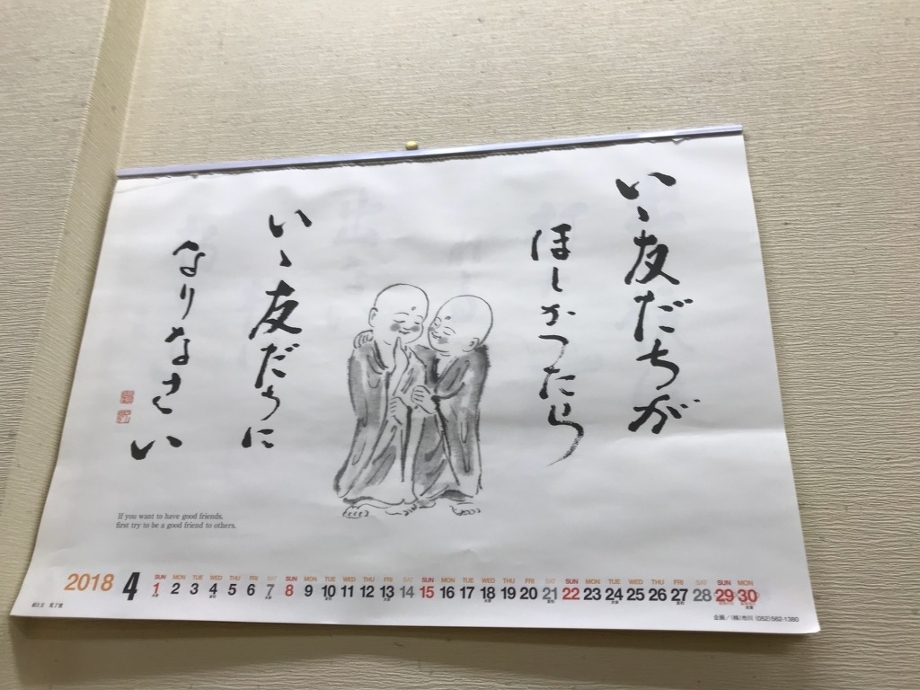 いゝ友だちが
ほしかつたら
いゝ友だちに
なりなさい
If you want to have good friends,
first try to be a good friend to others.
2018 4
SUN MON TUE WED THU FRI SAT SUN MON TUE WED THU FRI SAT SUN MON TUE WED THU FRI SAT SUN MON TUE WED THU FRI SAT SUN MON
1 2 3 4 5 6 7 8 9 10 11 12 13 14 15 16 17 18 19 20 21 22 23 24 25 26 27 28 29 30
(052)562-1380